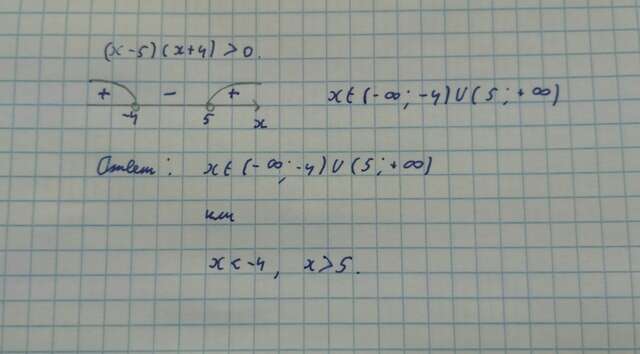 (x-5)(x+4)>0.
+ - +
-4 5 x
x∈(-∞; -4)∪(5; +∞)
Ответ: x∈(-∞; -4)∪(5; +∞)
или
x<-4, x>5.